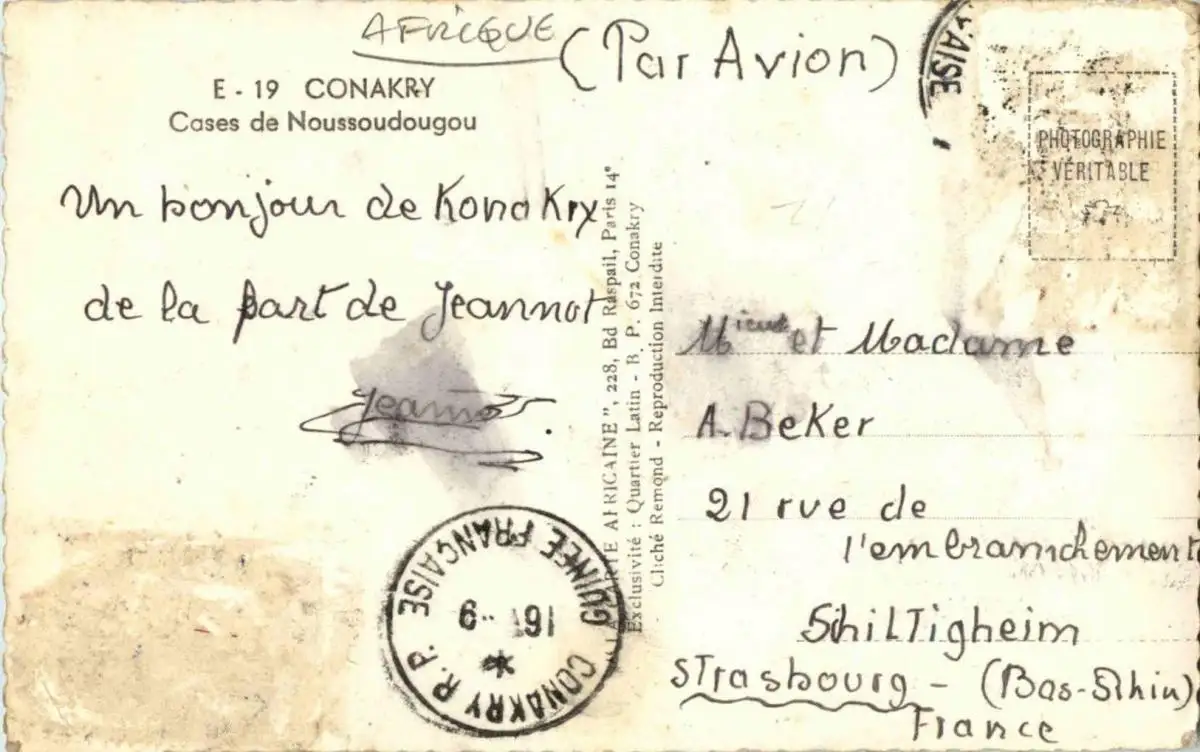 AFRIQUE
(Par Avion)
E - 19 CONAKRY
Cases de Noussoudougou
Un bonjour de Konakry
de la part de Jeannot
Jeannot
AFRICAINE", 228, Bd Raspail, Paris 14e
Exclusivité : Quartier Latin - B. P. 672 Conakry
Cliché Remond - Reproduction Interdite
PHOTOGRAPHIE
VÉRITABLE
Mieur et Madame
A. Beker
21 rue de
l'embranchement
SchilTigheim
Strasbourg - (Bas-Rhin)
France
CONAKRY R.P.
GUINÉE FRANÇAISE